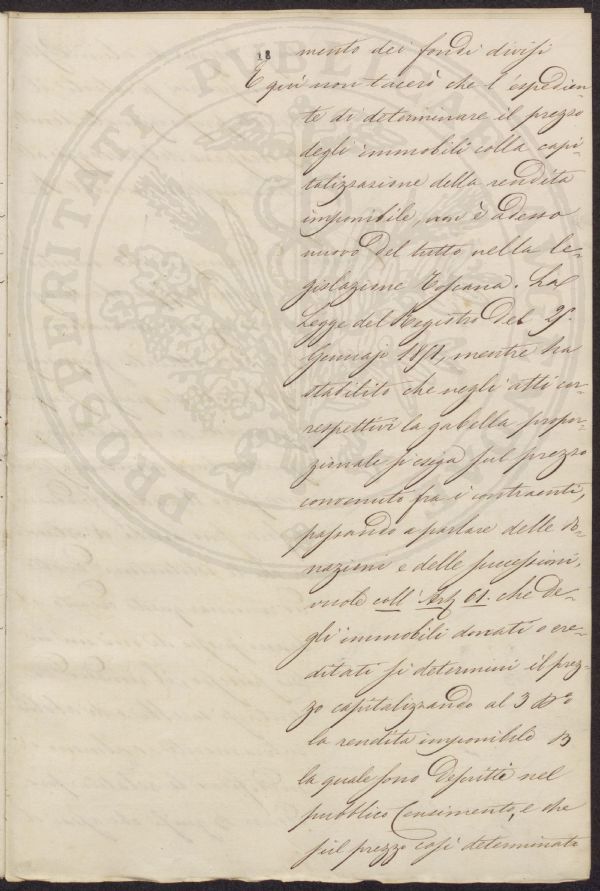 18
mento dei fondi divisi
E qui non tacerò che l'espedien-
te di determinare il prezzo
degli immobili colla capi-
talizzazione della rendita
imponibile, non è adesso
nuovo del tutto nella le-
gislazione Toscana. La
Legge del Registro del
Gennajo 1851, mentre ha
stabilito che negli atti cor-
respettivi la gabella propor-
zionale si esiga sul prezzo
convenuto fra i contraenti,
passando a parlare delle do-
nazioni e delle successioni,
vuole coll' Art 61. che de-
gli immobili donati o ere-
ditati si determini il prez-
zo capitalizzando al 3 p%
la rendita imponibile p
la quale sono descritti nel
pubblico Censimento, e che
sul prezzo così determinato
PROSPERITATI PUBLICAE